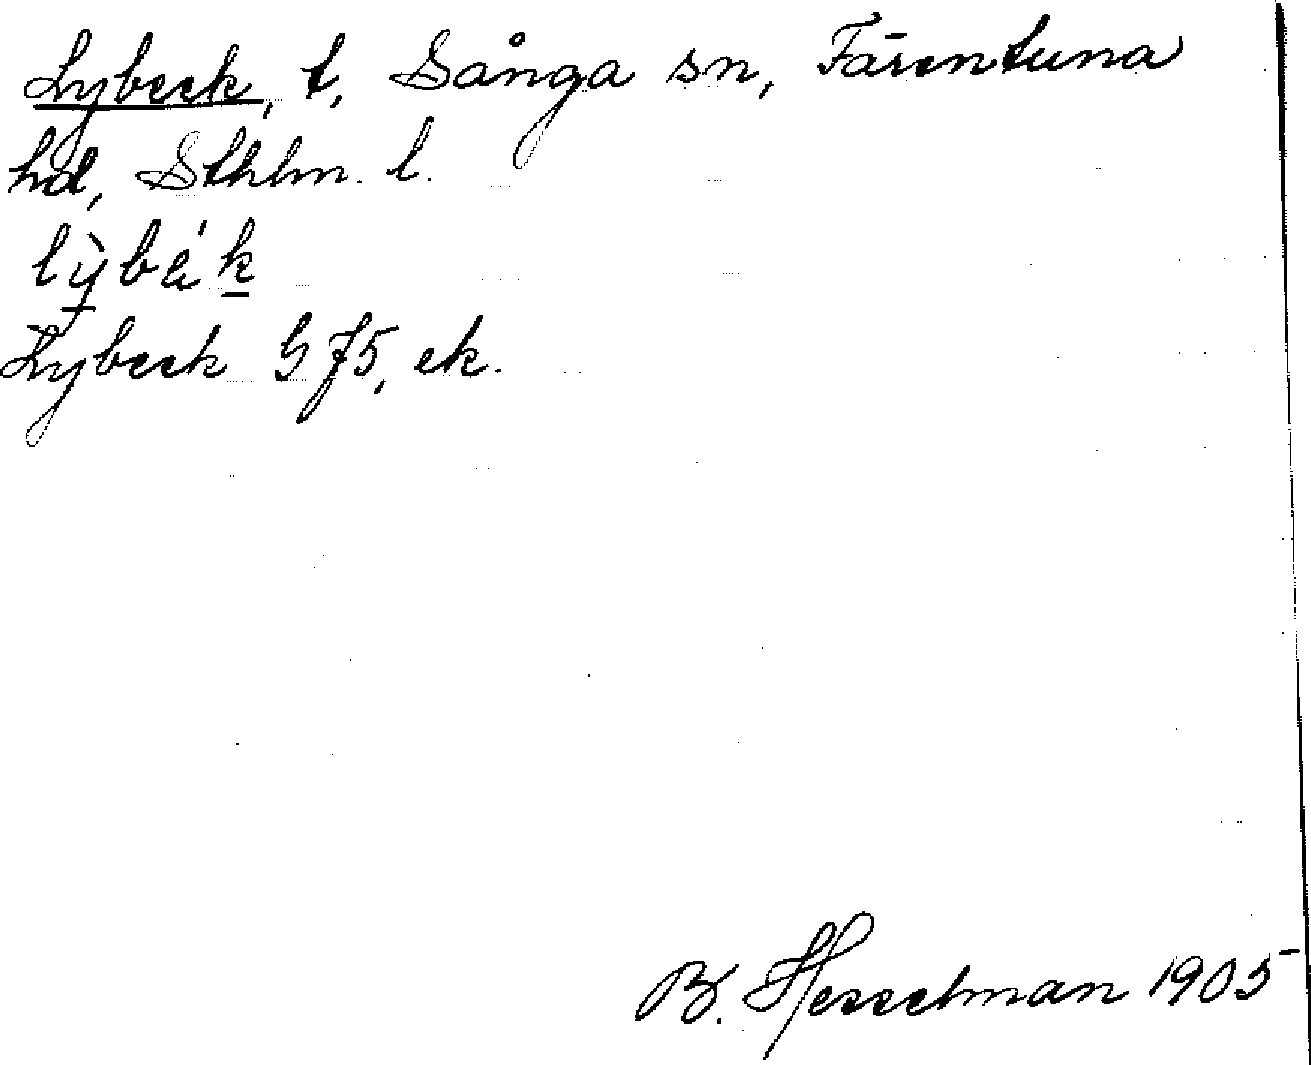 Lybeck, t, Sånga sn, Färentuna
hd, Sthlm. l.
Lybeck G J5, ek.
B. Hesselman 1905